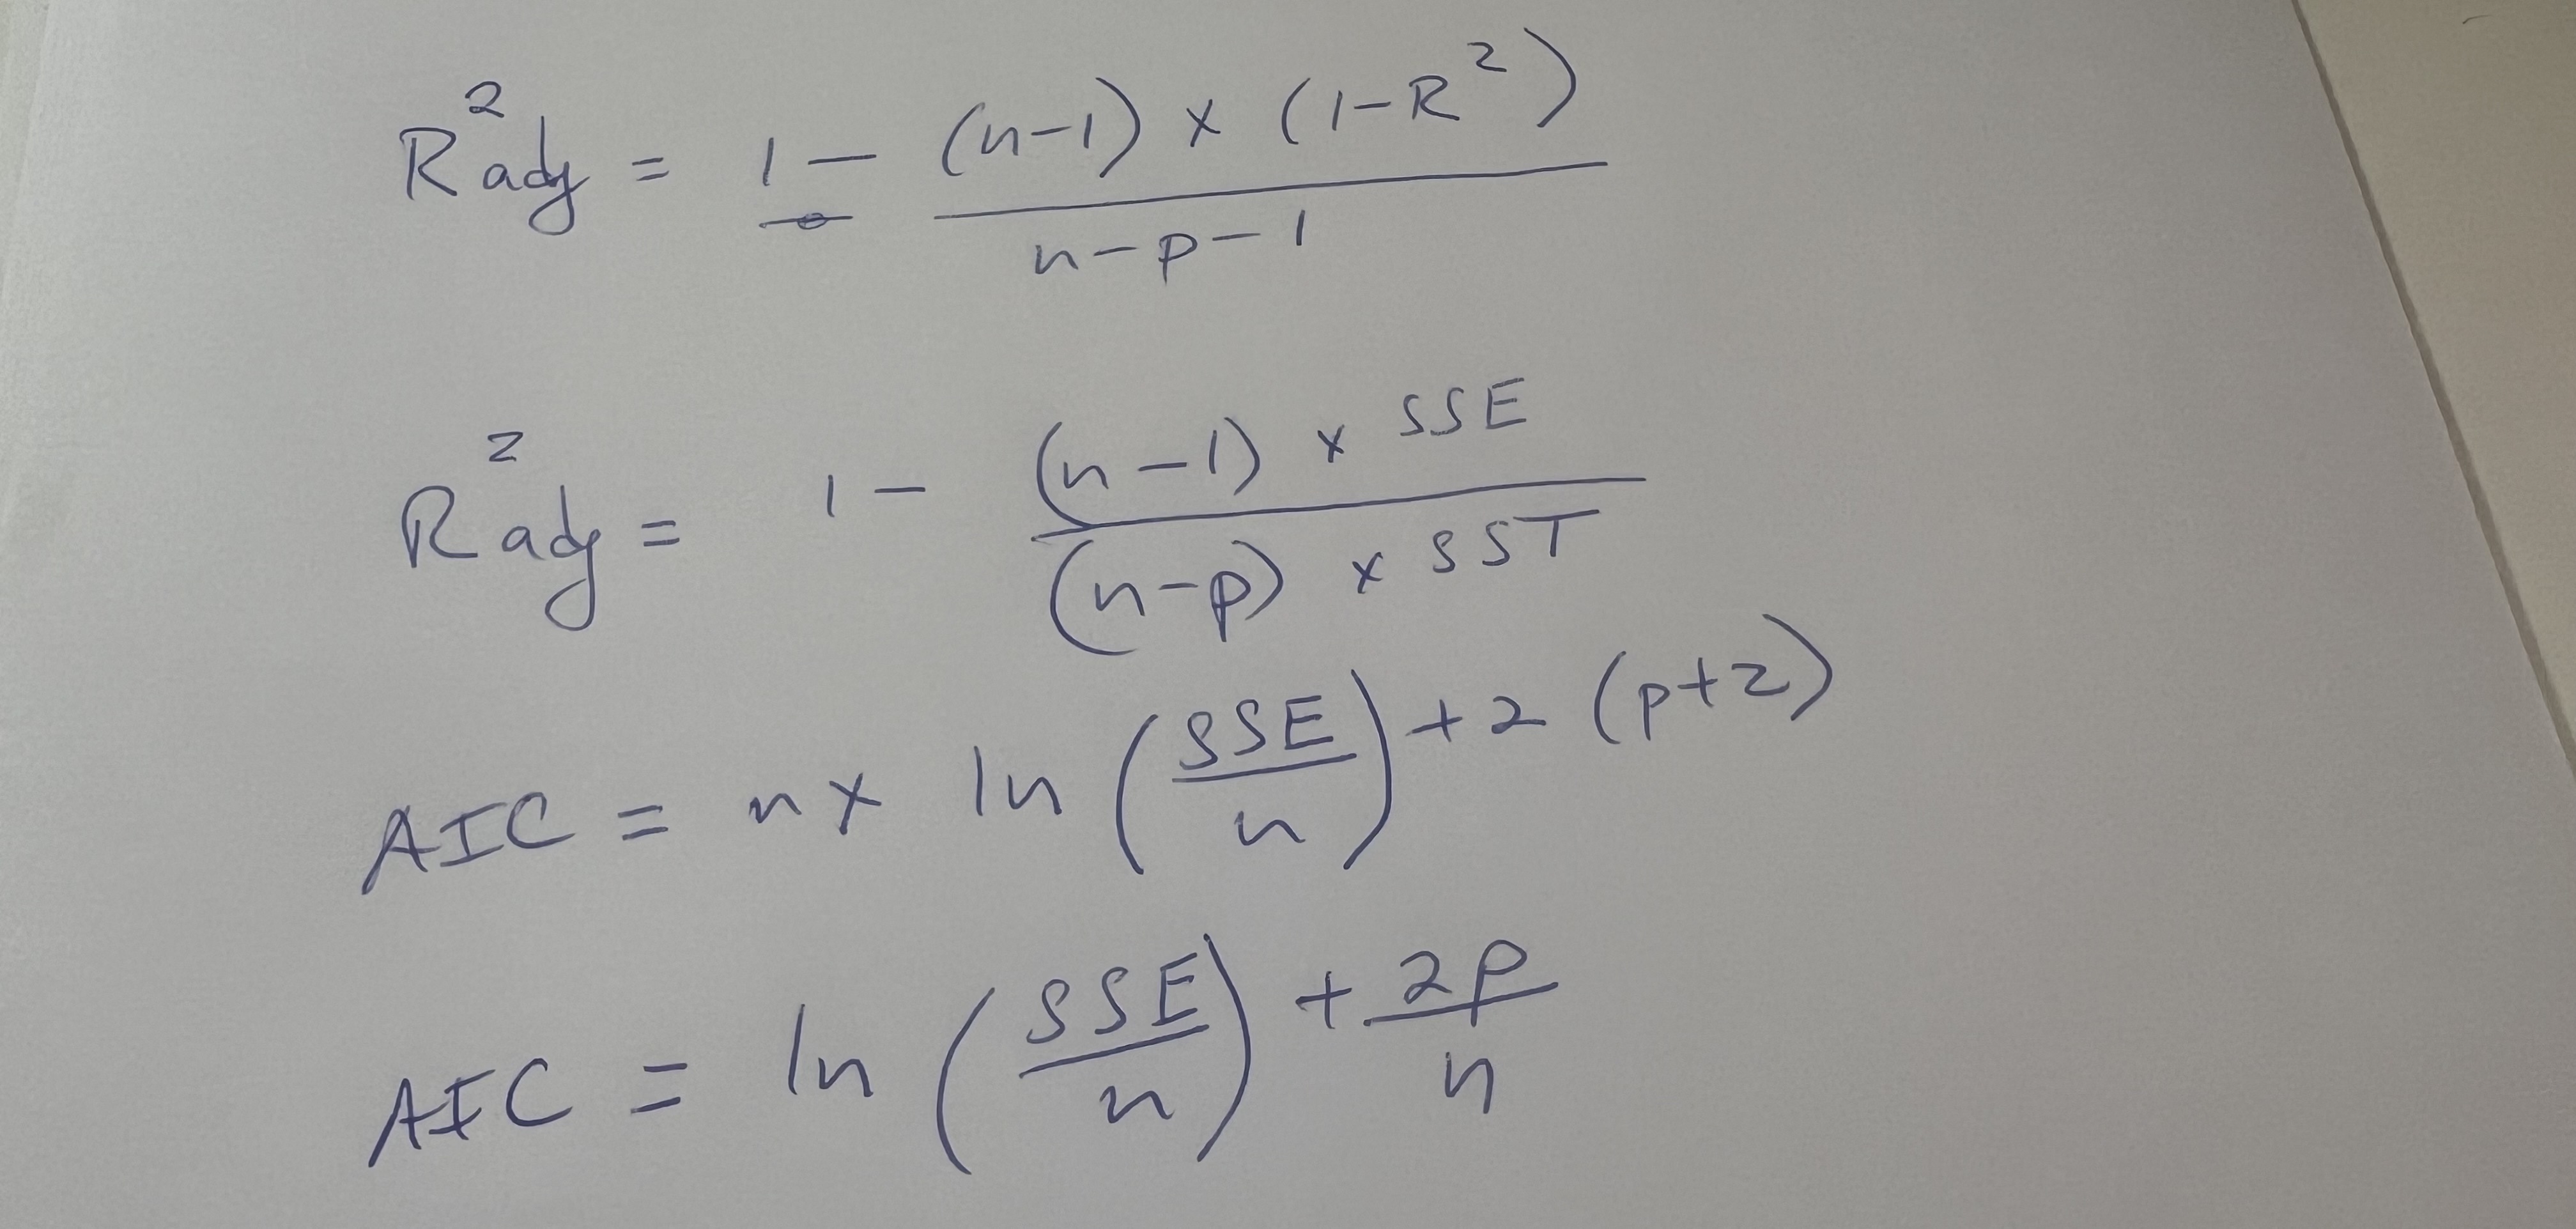 R²adj = 1 - (n-1) × (1-R²) / n-p-1
R²adj = 1 - (n-1) × SSE / (n-p) × SST
AIC = n × ln (SSE/n) + 2 (p+2)
AIC = ln (SSE/n) + 2p/n